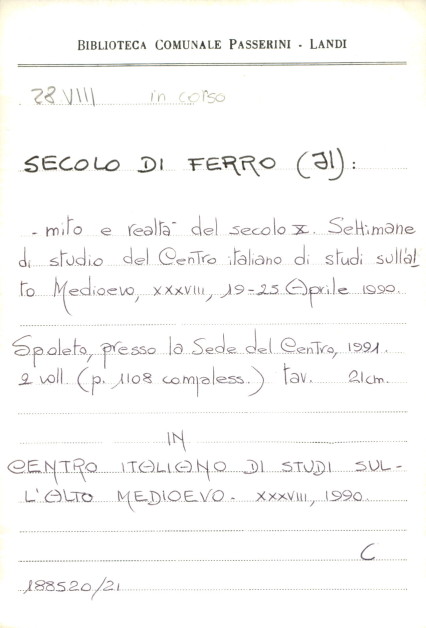 BIBLIOTECA COMUNALE PASSERINI - LANDI
28 VIII in corso
SECOLO DI FERRO (Il):
- mito e realtà del secolo X. Settimane
di studio del Centro italiano di studi sull'al
to Medioevo, XXXVIII, 19-25 Aprile 1990.
Spoleto, presso la Sede del Centro, 1991.
2 voll. (p. 1108 compless.) tav. 21cm.
IN
CENTRO ITALIANO DI STUDI SUL-
L'ALTO MEDIOEVO - XXXVIII, 1990.
C
188520/21